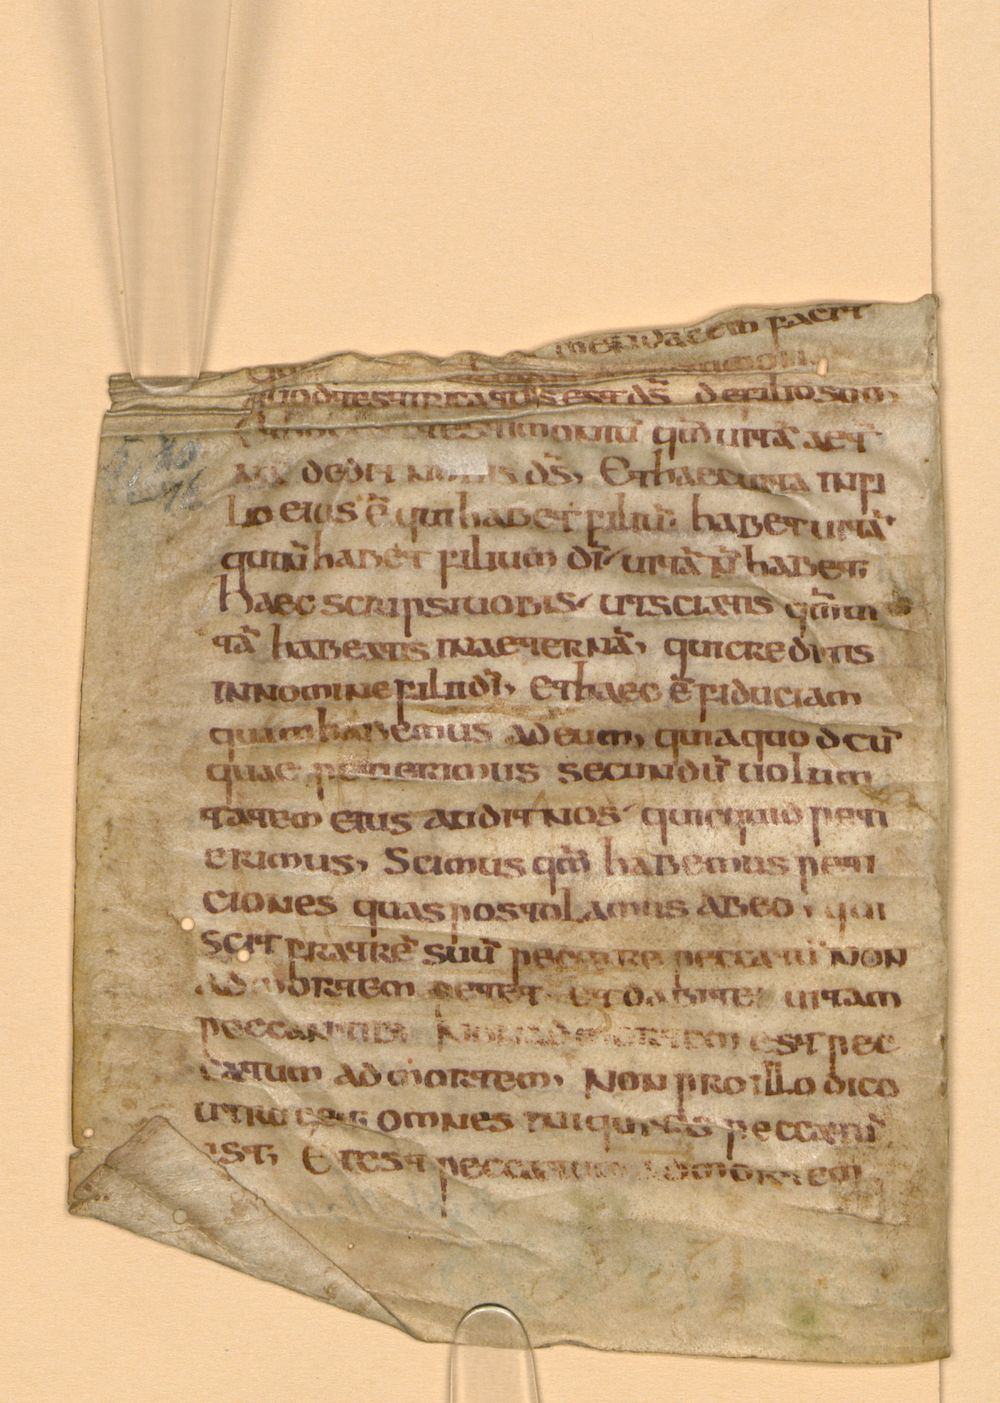 mendacem facit
quod testificatus est ds̄ de filio suo
testimoniū qm̄ uitā aet
nā dedit nobis ds̄, Et haec uita in fi
lio eius ē qui habet filiū habet uitā
qui n̄ habet filium dī uitā n̄ habet,
haec scripsi uobis ut sciatis qm̄ ui
tā habeatis in aeternā, qui creditis
in nomine filii dī, Et haec ē fiduciam
quam habemus ad eum, quia quodcū
quae petierimus secundū uolum
tatem eius audit nos quicquid peti
erimus, Scimus qm̄ habemus peti
ciones quas postolamus ab eo, qui
scit fratrē suū peccare peccatū non
ad mortem petet et dabitei uitam
peccantibus non ad mortem est pec
catum ad mortem, Non pro illo dico
ut roget, omnes iniquitas peccatū
est, Et est peccatum ad mortem